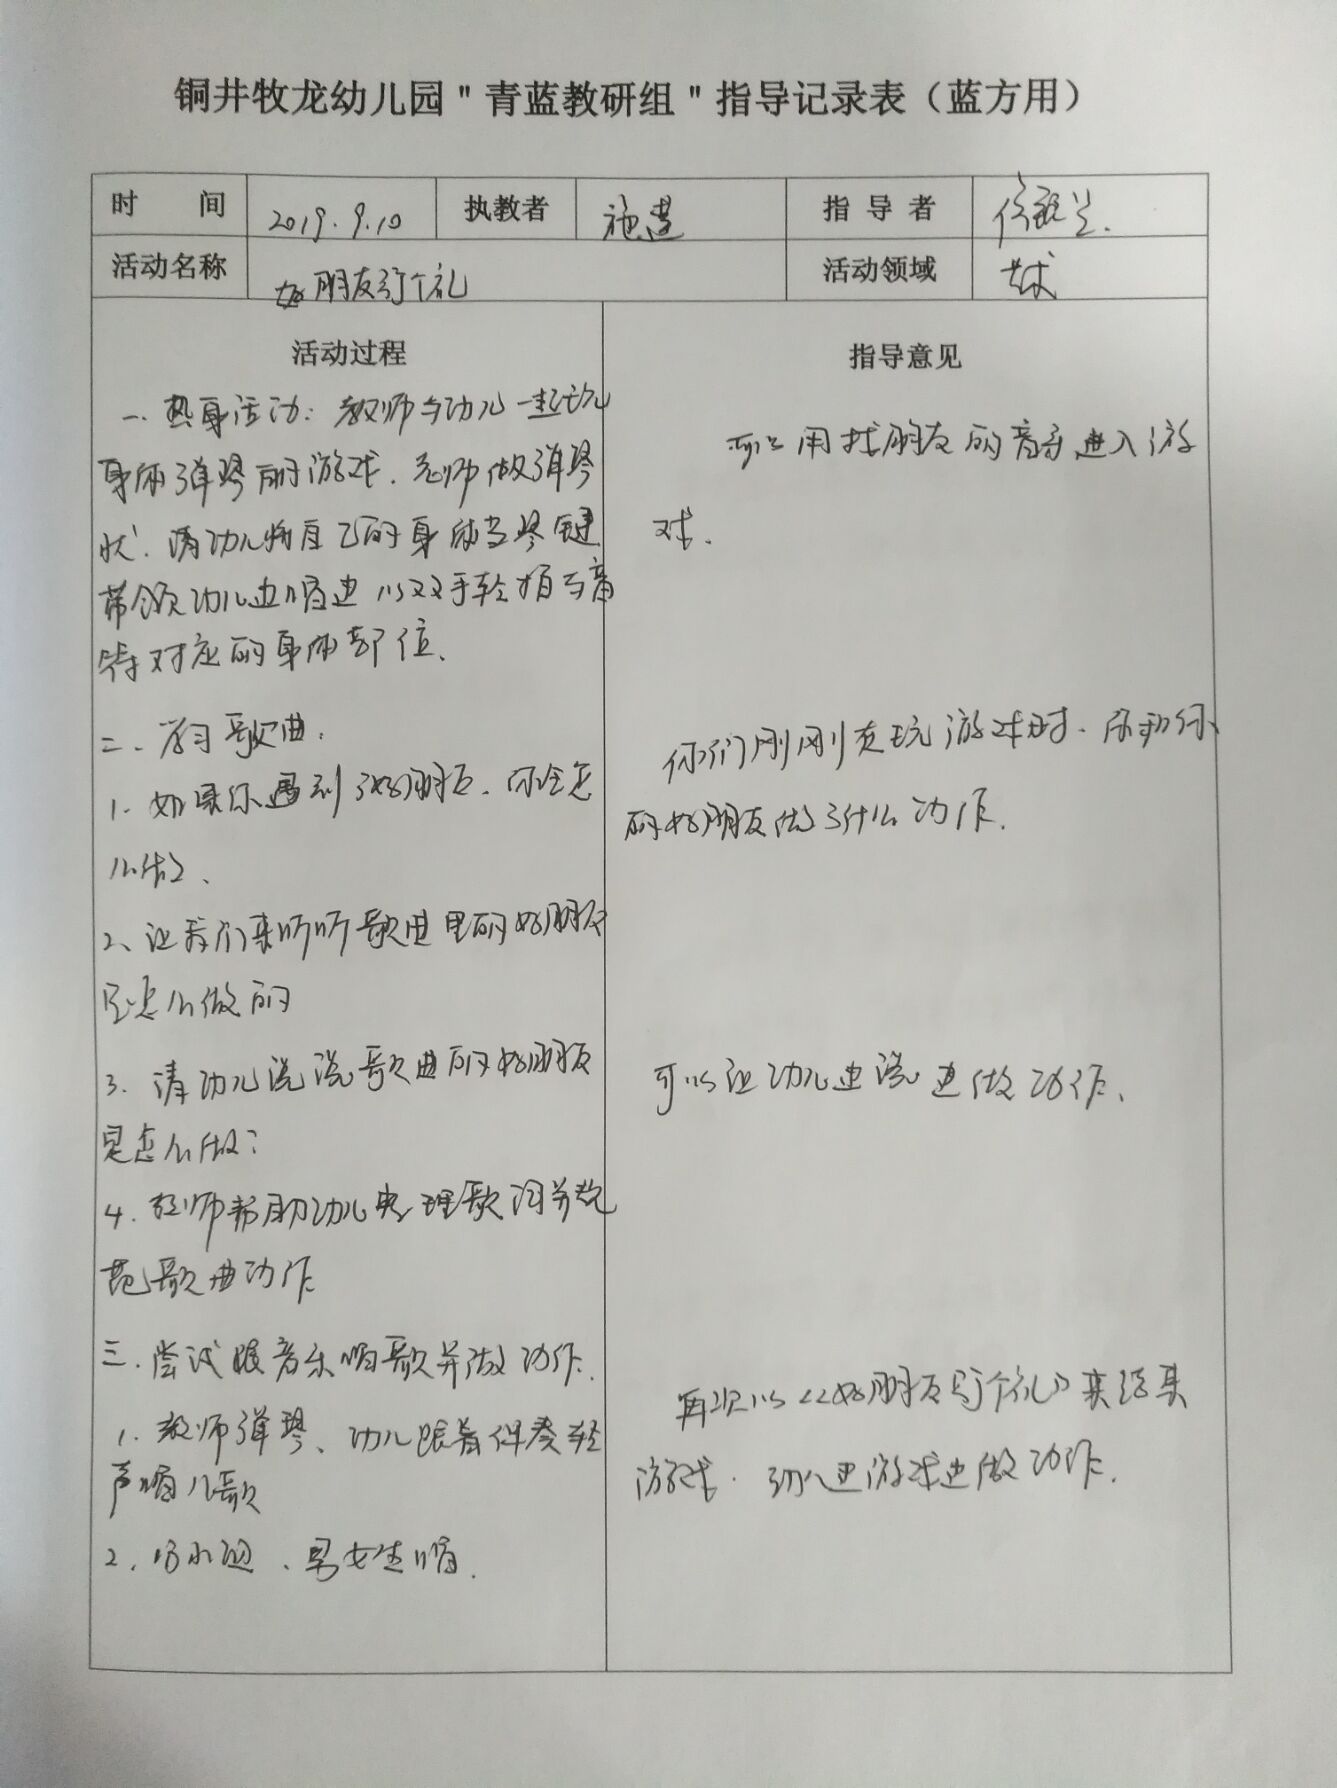 铜井牧龙幼儿园"青蓝教研组"指导记录表（蓝方用）
时 间 2019.9.10 执教者 施 指导者
活动名称 好朋友行个礼 活动领域 艺术
活动过程
一、热身活动：教师与幼儿一起玩
身体弹琴的游戏．老师做弹琴
状．请幼儿将自己的身体当琴键
带领幼儿边唱边以双手轻拍与音
符对应的身体部位．
二、学习歌曲．
1、如果你遇到了好朋友．你会怎
么做、
2、让我们来听听歌曲里的好朋友
是怎么做的
3．请幼儿说说歌曲的好朋友
是怎么做：
4．教师帮助幼儿 理歌词并规
范歌曲动作
三．尝试跟音乐唱歌并做动作．
1．教师弹琴、幼儿跟着伴奏轻
声唱儿歌
2．分小组、男女生唱．
指导意见
可以用找朋友的音乐进入游
戏．
你们刚刚在玩游戏时．你和你
的好朋友做了什么动作．
可以让幼儿边说边做动作、
再次以《好朋友行个礼》来结束
游戏． 边游戏边做动作．